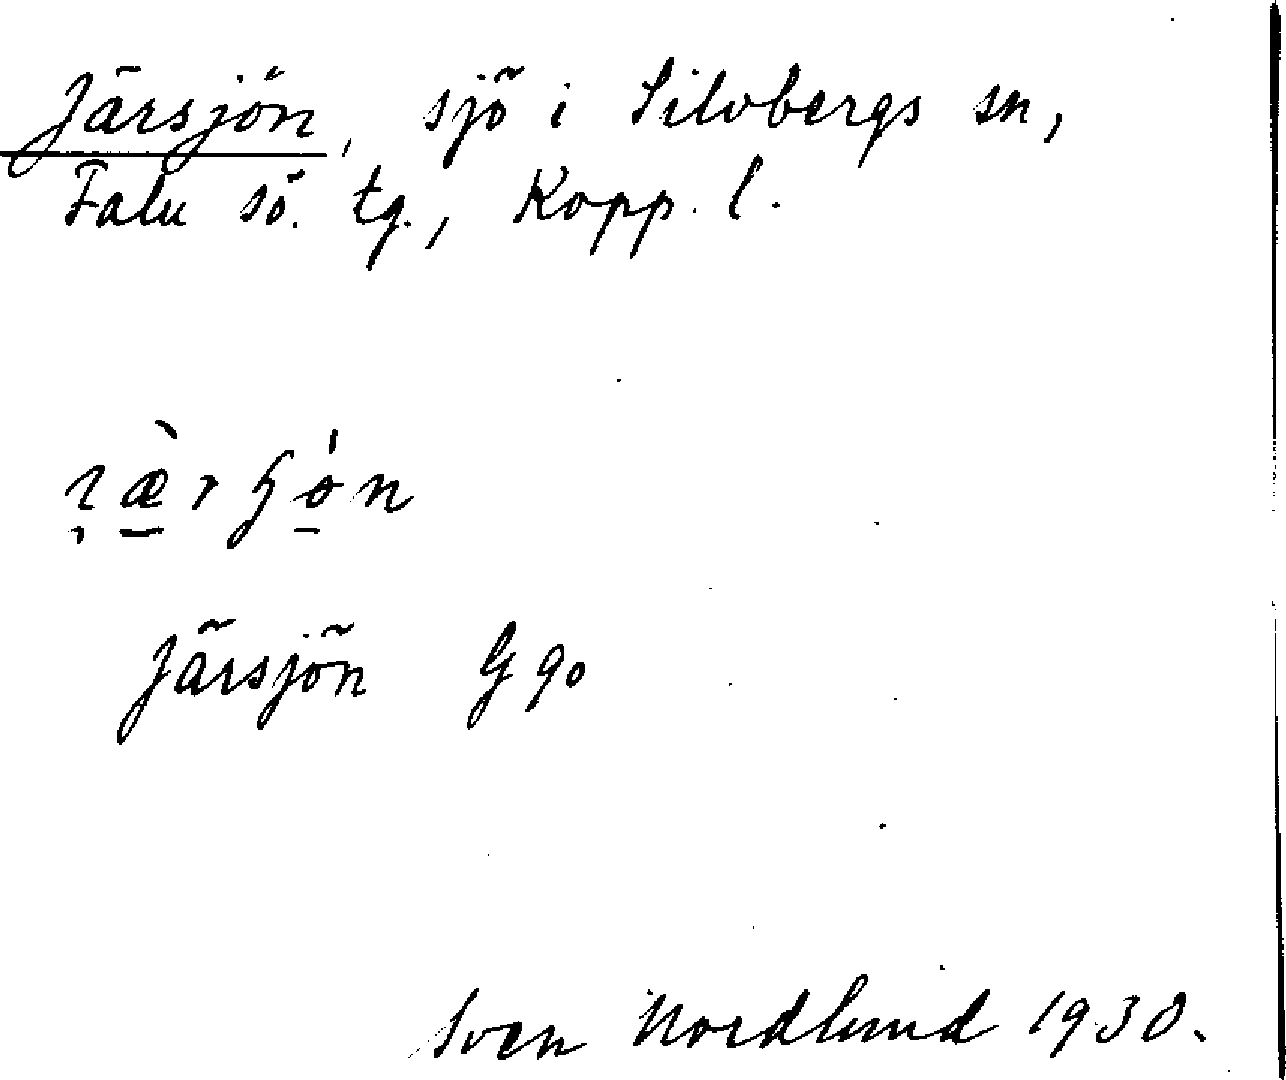 Järsjön, sjö i Silvbergs sn,
Falu sö. tg., Kopp. l.
Järsjön G 90
Sven Nordlund 1930.